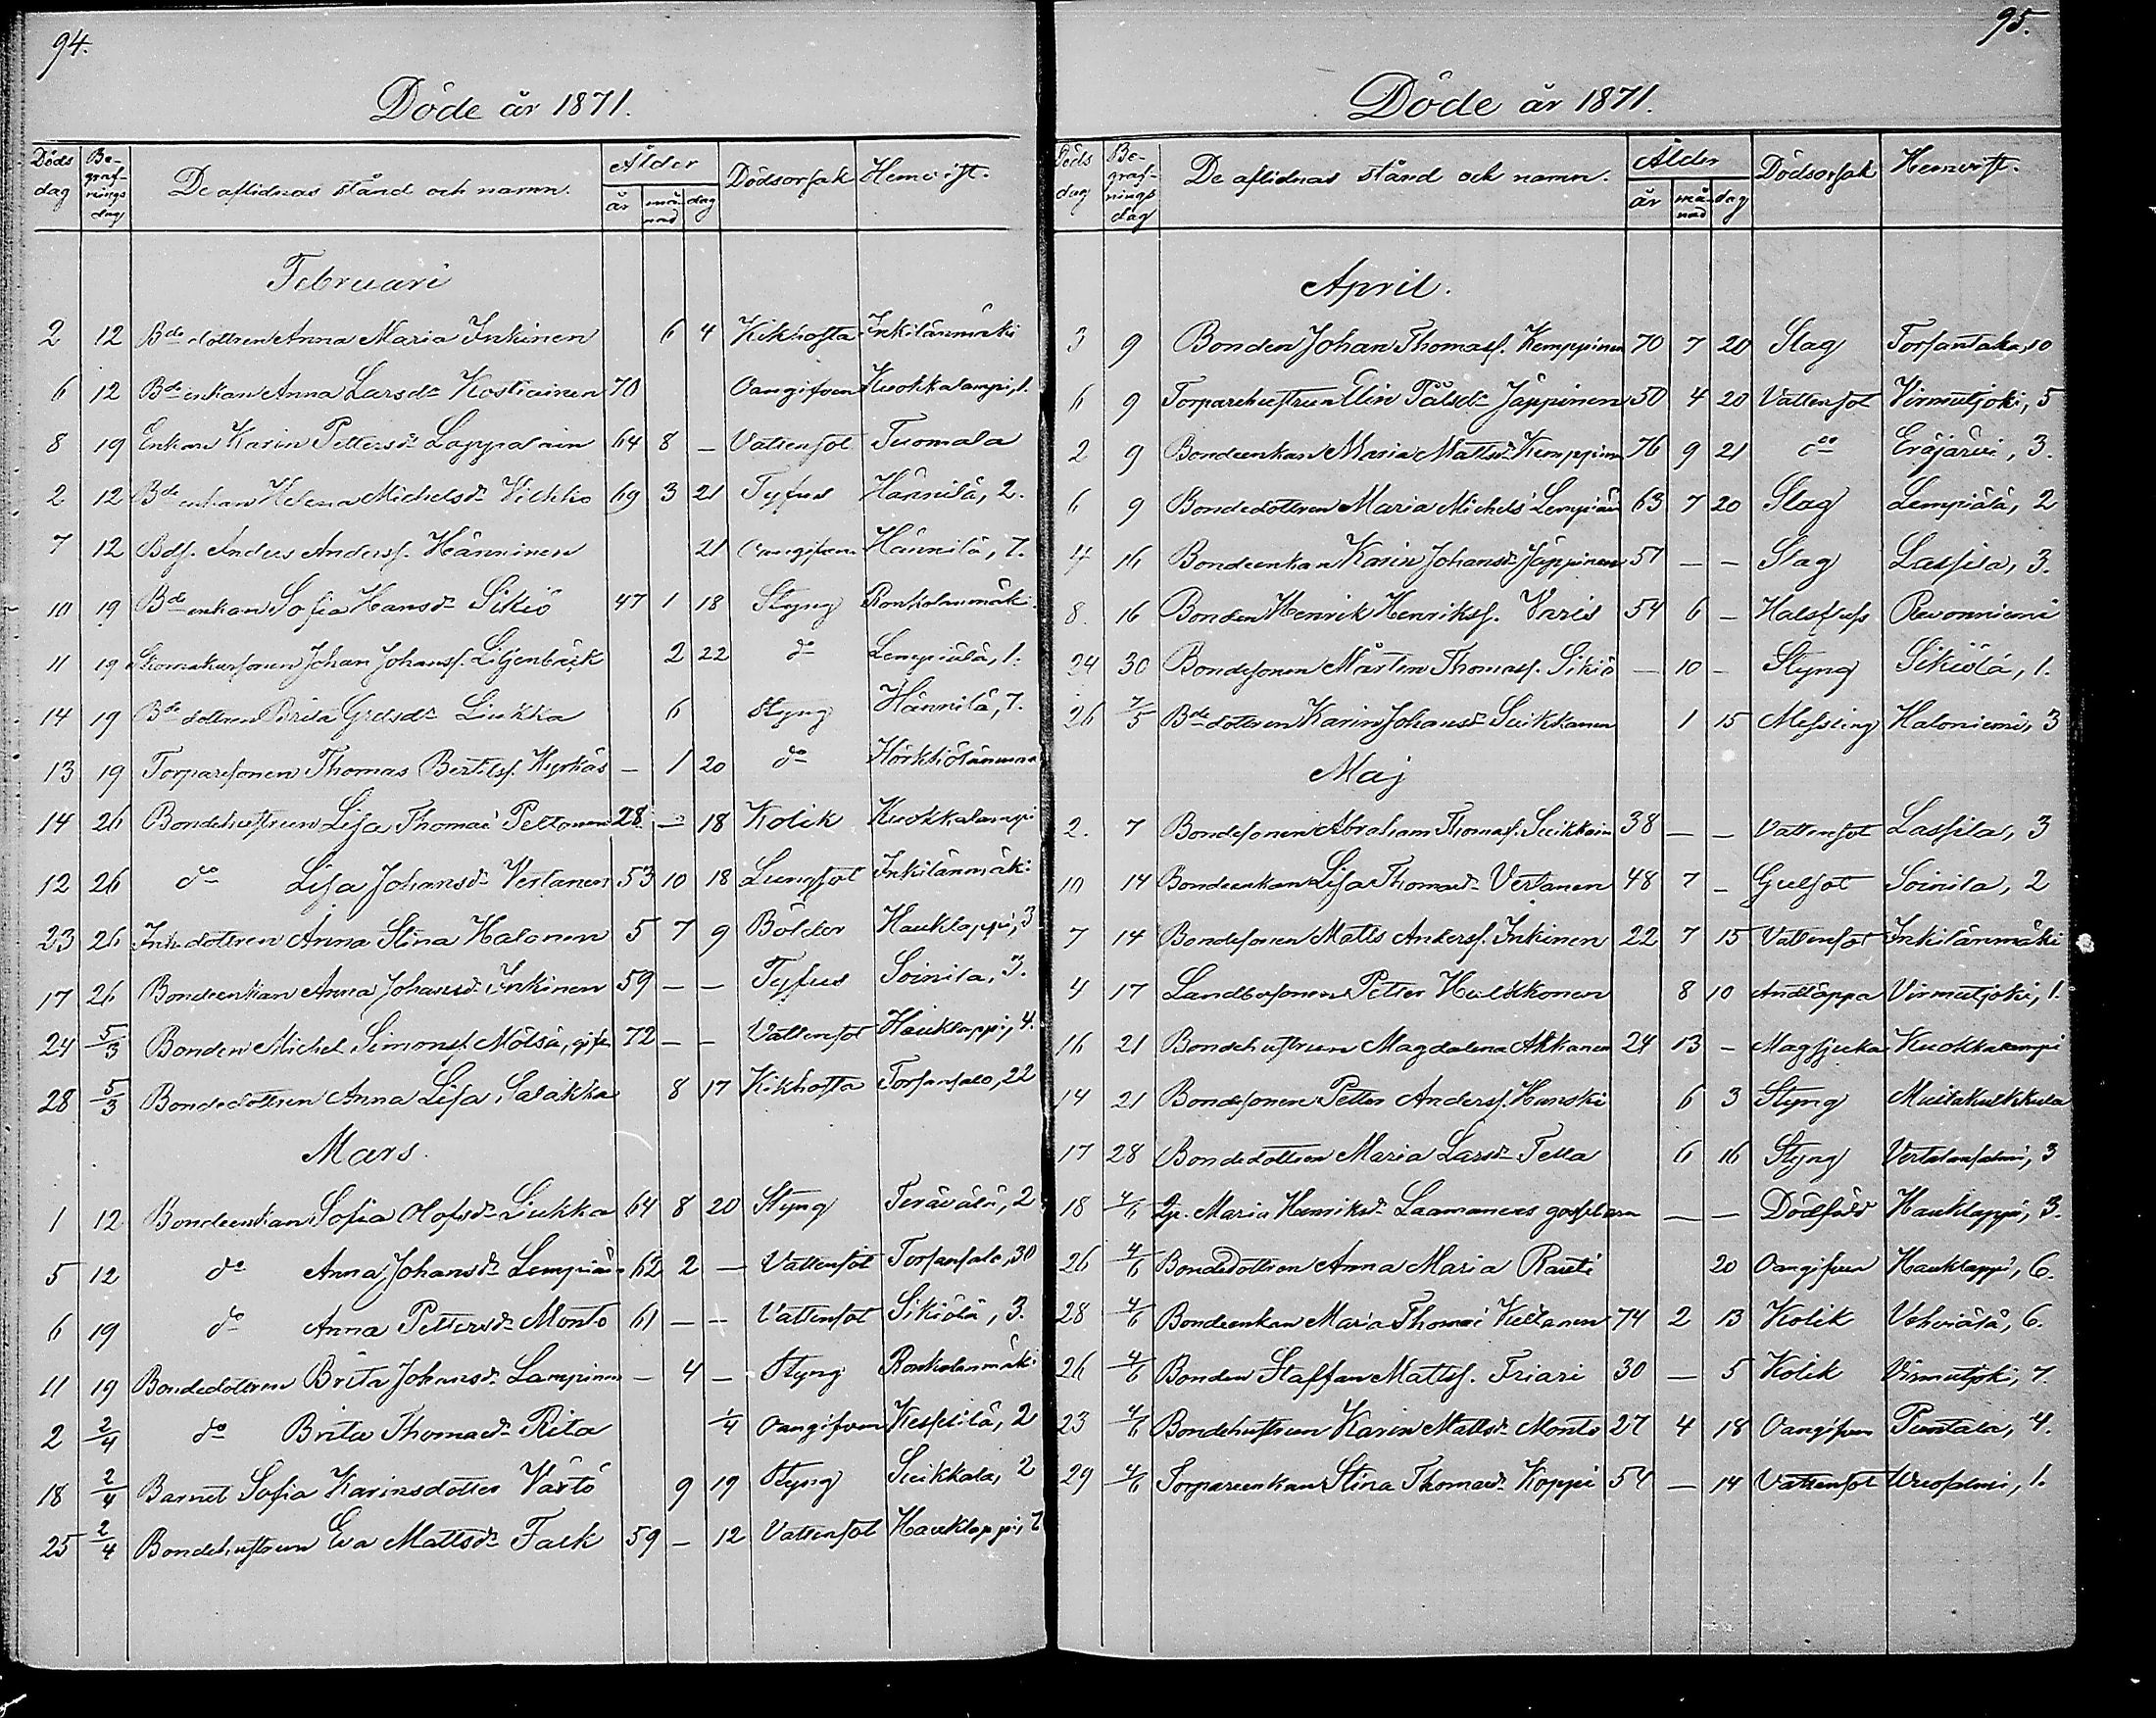 94.
Döde år 1871.
Döds dag Begrafnings dag De aflidnas stånd och namn. Ålder år månad dag Dödsorsak Hemvist.
Februari
2 12 Bde dottren Anna Maria Inkinen 6 4 Kikhosta Inkilänmäki
6 12 Bde enkan Anna Larsdr Kostiainen 70 Oangifven Kuokkalampi, 1.
8 19 Enkan Karin Pettersdr Lappalain 64 8 – Vattensot Tuomala
2 12 Bde enkan Helena Michelsdr Vilkko 69 3 21 Tyfus Hännilä, 2.
7 12 Bds. Anders Anderss. Hänninen 21 Oangifven Hännilä, 7.
10 19 Bde enkan Sofia Hansdr Sikiö 47 1 18 Styng Ronkolanmäki
11 19 Skomakarsonen Johan Johanss. Liljenbäck 2 22 do Lempiälä, 1.
14 19 Bde dottren Brita Gretsdr Liukka 6 Styng Hännilä, 7.
13 19 Torparesonen Thomas Bertilss. Hyrkäs – 1 20 do
14 26 Bondehustrun Lisa Thomasdr Peltonen 28 – 18 Kolik Kuokkalampi
12 26 do Lisa Johansdr Vertanen 53 10 18 Lungsot Inkilänmäki
23 26 Inh. dottren Anna Stina Halonen 5 7 9 Bölder Hauklappi, 3
17 26 Bondeenkan Anna Johansdr Inkinen 59 – – Tyfus Soinila, 3.
24 5/3 Bonden Michel Simonss. Mölsä, gift 72 – – Vattensot Hauklappi, 4.
28 5/3 Bondedottren Anna Lisa Salakka 8 17 Kikhosta Torsansalo, 22
Mars.
1 12 Bondeenkan Sofia Olofsdr Liukka 64 8 20 Styng Terävälä, 2
5 12 do Anna Johansdr Lempiäin 62 2 – Vattensot Torsansalo, 30
6 19 do Anna Pettersdr Monto 61 – – Vattensot Sikiölä, 3.
11 19 Bondedottren Brita Johansdr Lampinen – 4 – Styng Ronkolanmäki
2 2/4 do Brita Thomasdr Rita 1/4 Oangifven Kesseilä, 2
18 2/4 Barnet Sofia Karinsdotter Värtö 9 19 Styng Suikkala, 2
25 2/4 Bondehustrun Eva Mattsdr Falk 59 – 12 Vattensot Hauklappi, 7
95.
Döde år 1871.
Döds dag Begrafnings dag De aflidnas stånd och namn. Ålder år månad dag Dödsorsak Hemvist.
April.
3 9 Bonden Johan Thomass. Kemppinen 70 7 20 Slag
6 9 Torparehustrun Elin Pålsdr Jäppinen 50 4 20 Vattensot Virmutjoki, 5
2 9 Bondeenkan Maria Mattsdr Kemppinen 76 9 21 do Eräjärvi, 3.
6 9 Bondedottren Maria Michelsdr Lempiäin 63 7 20 Slag Lempiälä, 2
4 16 Bondeenkan Karin Johansdr Jäppinen 51 – – Slag Lassila, 3.
8. 16 Bonden Henrik Henrikss. Varis 54 6 – Halsfluss Revonniemi
24 30 Bondesonen Mårten Thomass. Sikiö – 10 – Styng Sikiölä, 1.
26 7/5 Bde dottren Karin Johansdr Suikkanen 1 15 Messling Haloniemi, 3
Maj
2. 7 Bondesonen Abraham Thomass. Suikkain 38 – – Vattensot Lassila, 3
10 14 Bondeenkan Lisa Thomasdr Vertanen 48 7 – Gulsot Soinila, 2
7 14 Bondesonen Matts Anderss. Inkinen 22 7 15 Vattensot Inkilänmäki
4 17 Landbosonen Petter Hulkkonen 8 10 Andtäppa Virmutjoki, 1.
16 21 Bondehustrun Magdalena Akkanen 24 13 – Magsjuka Kuokkalampi
14 21 Bondesonen Petter Anderss. Hanski 6 3 Styng
17 28 Bondedottren Maria Larsdr Tella 6 16 Styng Vertalansalmi, 3
18 4/6 Maria Henriksdr Laamanens gossebarn – – Dödfödd Hauklappi, 3.
26 4/6 Bondedottren Anna Maria Rauti 20 Oangifven Hauklappi, 6.
28 4/6 Bondeenkan Maria Thomasdr Kultanen 74 2 13 Kolik Vehviälä, 6.
26 4/6 Bonden Staffan Mattss. Friari 30 – 5 Kolik Virmutjoki, 7.
23 4/6 Bondehustrun Karin Mattsdr Monto 27 4 18 Oangifven Puntala, 4.
29 4/6 Torpareenkan Stina Thomasdr Koppi 54 – 14 Vattensot Utrosalmi, 1.